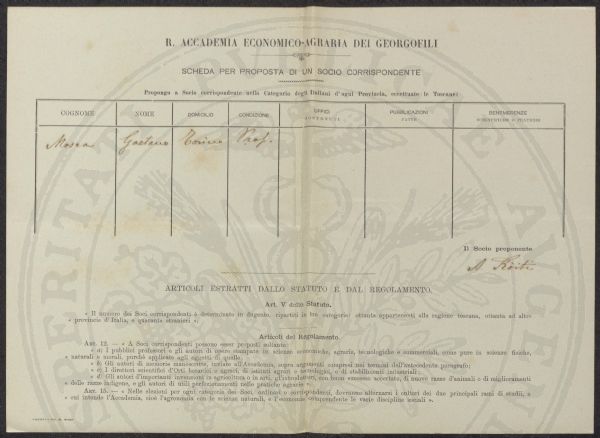 R. ACCADEMIA ECONOMICO-AGRARIA DEI GEORGOFILI
SCHEDA PER PROPOSTA DI UN SOCIO CORRISPONDENTE
Propongo a Socio corrispondente nella Categoria degli Italiani d'ogni Provincia, eccettuate le Toscane:
COGNOME NOME DOMICILIO CONDIZIONE UFFICI SOSTENUTI PUBBLICAZIONI FATTE BENEMERENZE SCIENTIFICHE O PRATICHE
Mosca Gaetano Torino Prof.
Il Socio proponente
ARTICOLI ESTRATTI DALLO STATUTO E DAL REGOLAMENTO.
Art. V dello Statuto.
« Il numero dei Soci corrispondenti è determinato in dugento, ripartiti in tre categorie: ottanta appartenenti alla regione toscana, ottanta ad altre
« provincie d'Italia, e quaranta stranieri ».
Articoli del Regolamento.
ART. 12. — « A Soci corrispondenti possono esser proposti soltanto:
« a) I pubblici professori e gli autori di opere stampate in scienze economiche, agrarie, tecnologiche e commerciali, come pure in scienze fisiche,
« naturali e morali, purchè applicate agli oggetti di quelle;
« b) Gli autori di memorie manoscritte, inviate all'Accademia, sopra argomenti compresi nei termini dell'antecedente paragrafo;
« c) I direttori scientifici d'Orti botanici e agrari, di istituti agrari e tecnologici, o di stabilimenti industriali;
« d) Gli autori d'importanti invenzioni in agricoltura o in arti, gl'introduttori, con buon successo accertato, di nuove razze d'animali o di miglioramenti
« delle razze indigene, e gli autori di utili perfezionamenti nelle pratiche agrarie ».
ART. 15. — « Nelle elezioni per ogni categoria dei Soci, ordinari o corrispondenti, dovranno alternarsi i cultori dei due principali rami di studii, a
« cui intende l'Accademia, cioè l'agronomia con le scienze naturali, e l'economia comprendente le varie discipline sociali ».